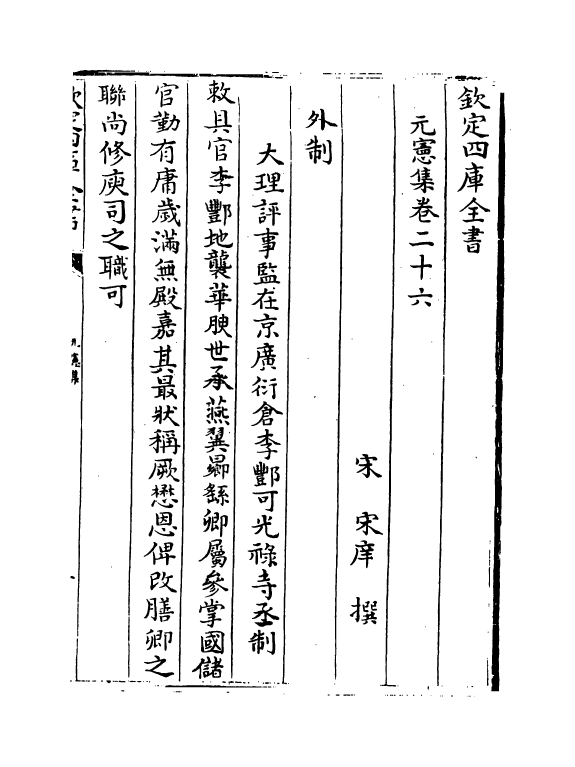 欽定四庫全書
元憲集卷二十六
宋　宋庠　撰
外制
大理評事監在京廣衍倉李酆可光祿寺丞制
敕具官李酆地襲華腴世承燕翼曏繇卿屬參掌國儲
官勤有庸歲滿無殿嘉其最狀稱厥懋恩俾改膳卿之
聯尚修庾司之職可
欽定四庫全書
元憲集